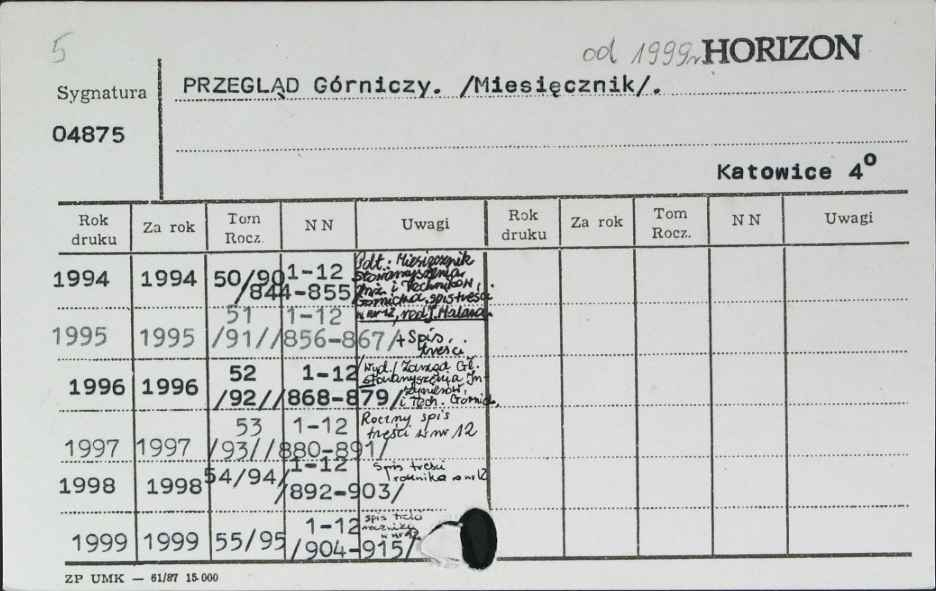 5
od 1999r. HORIZON
Sygnatura
04875
PRZEGLĄD Górniczy. /Miesięcznik/.
Katowice 4°
Rok druku Za rok Tom Rocz. N N Uwagi Rok druku Za rok Tom Rocz. N N Uwagi
1994 1994 50/90 1-12 /844-855/ Podt.: Miesięcznik
Stowarzyszenia
Inż. i Techników
Górnictwa, spis treści
w nr 12, red. J. Malara
1995 1995 51 1-12
/91/ /856-867/ + Spis
treści
1996 1996 52 1-12
/92/ /868-879/ Wyd./ Zarząd Gł.
Stowarzyszenia In-
żynierów
i Tech. Górnic.
1997 1997 53 1-12
/93/ /880-891/ Roczny spis
treści w nr 12
1998 1998 54/94/ 1-12
/892-903/ Spis treści
rocznika w nr 12
1999 1999 55/95 1-12
/904-915/ spis treści
rocznika
w nr 12
ZP UMK — 61/87 15 000